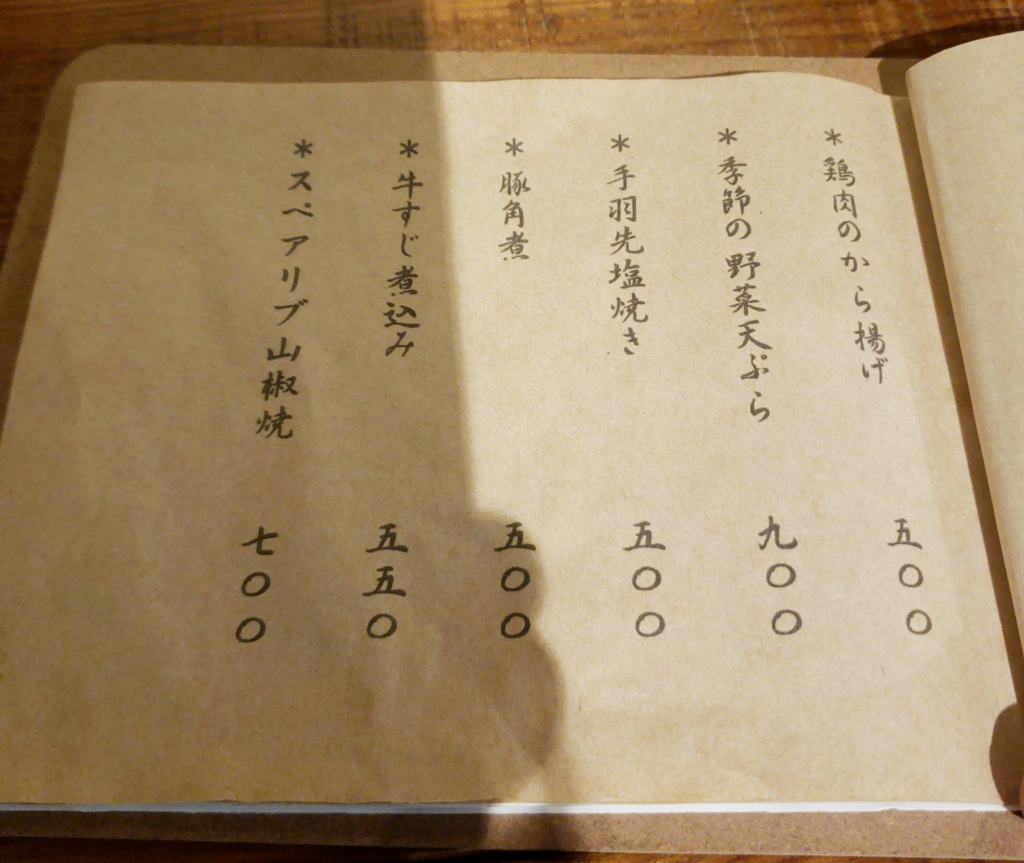 ＊鶏肉のから揚げ 五〇〇
＊季節の野菜天ぷら 九〇〇
＊手羽先塩焼き 五〇〇
＊豚角煮 五〇〇
＊牛すじ煮込み 五五〇
＊スペアリブ山椒焼 七〇〇